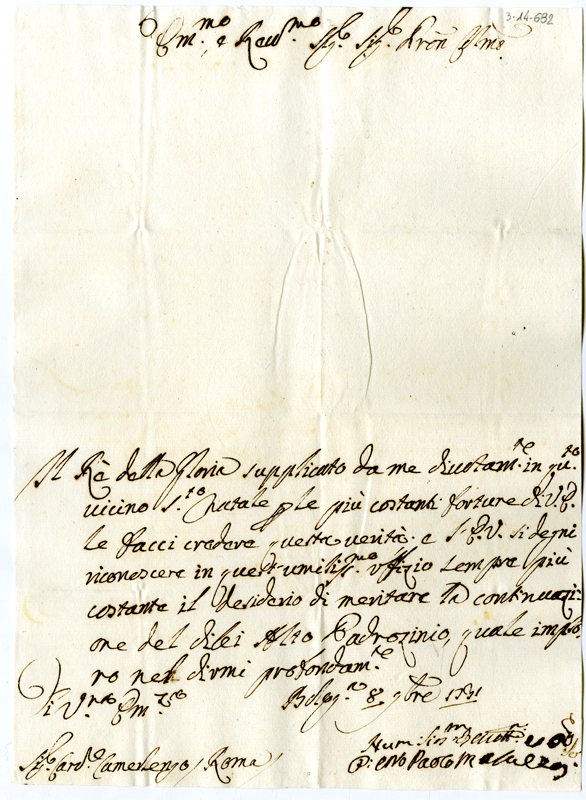 3-14-692
Em.mo, e Reu.mo Sig.e Sig.e Pron
Il Rè della Gloria supplicato da me diuotam.te in qu.to
uicino S.to Natale p le più costanti forture di V.E.
le facci credere questa verità. e S.E.V. si degni
riconoscere in quest umiliss.mo vffizio sempre più
costante il desiderio di meritare la continuazi-
one del dilei Alto Padrozinio, quale implo
ro nel dirmi profondam.te
Di V.ra Em.za
Bolog.na 8 9bre 1731
Sig.e Card.le Camerlengo, Roma
Hum.
Pietro Paolo